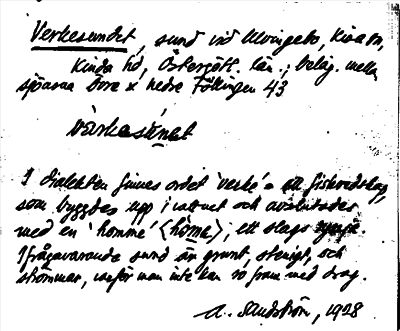 Verkesundet, sund vid Ulvingebo, Kisa sn,
Kinda hd, Östergötl. län; beläg. mellan
sjöarna Övre x Nedre Föllingen 43
värkesúnet
I dialekten finnes ordet 'verke' = ett fiskredskap,
som byggdes upp i vattnet och avslutades
med en 'homme' (hòme); ett slags ryssja.
Ifrågavarande sund är grunt, stenigt, och
strömmar, varför man inte kan ro fram med drag.
A. Sandström, 1928